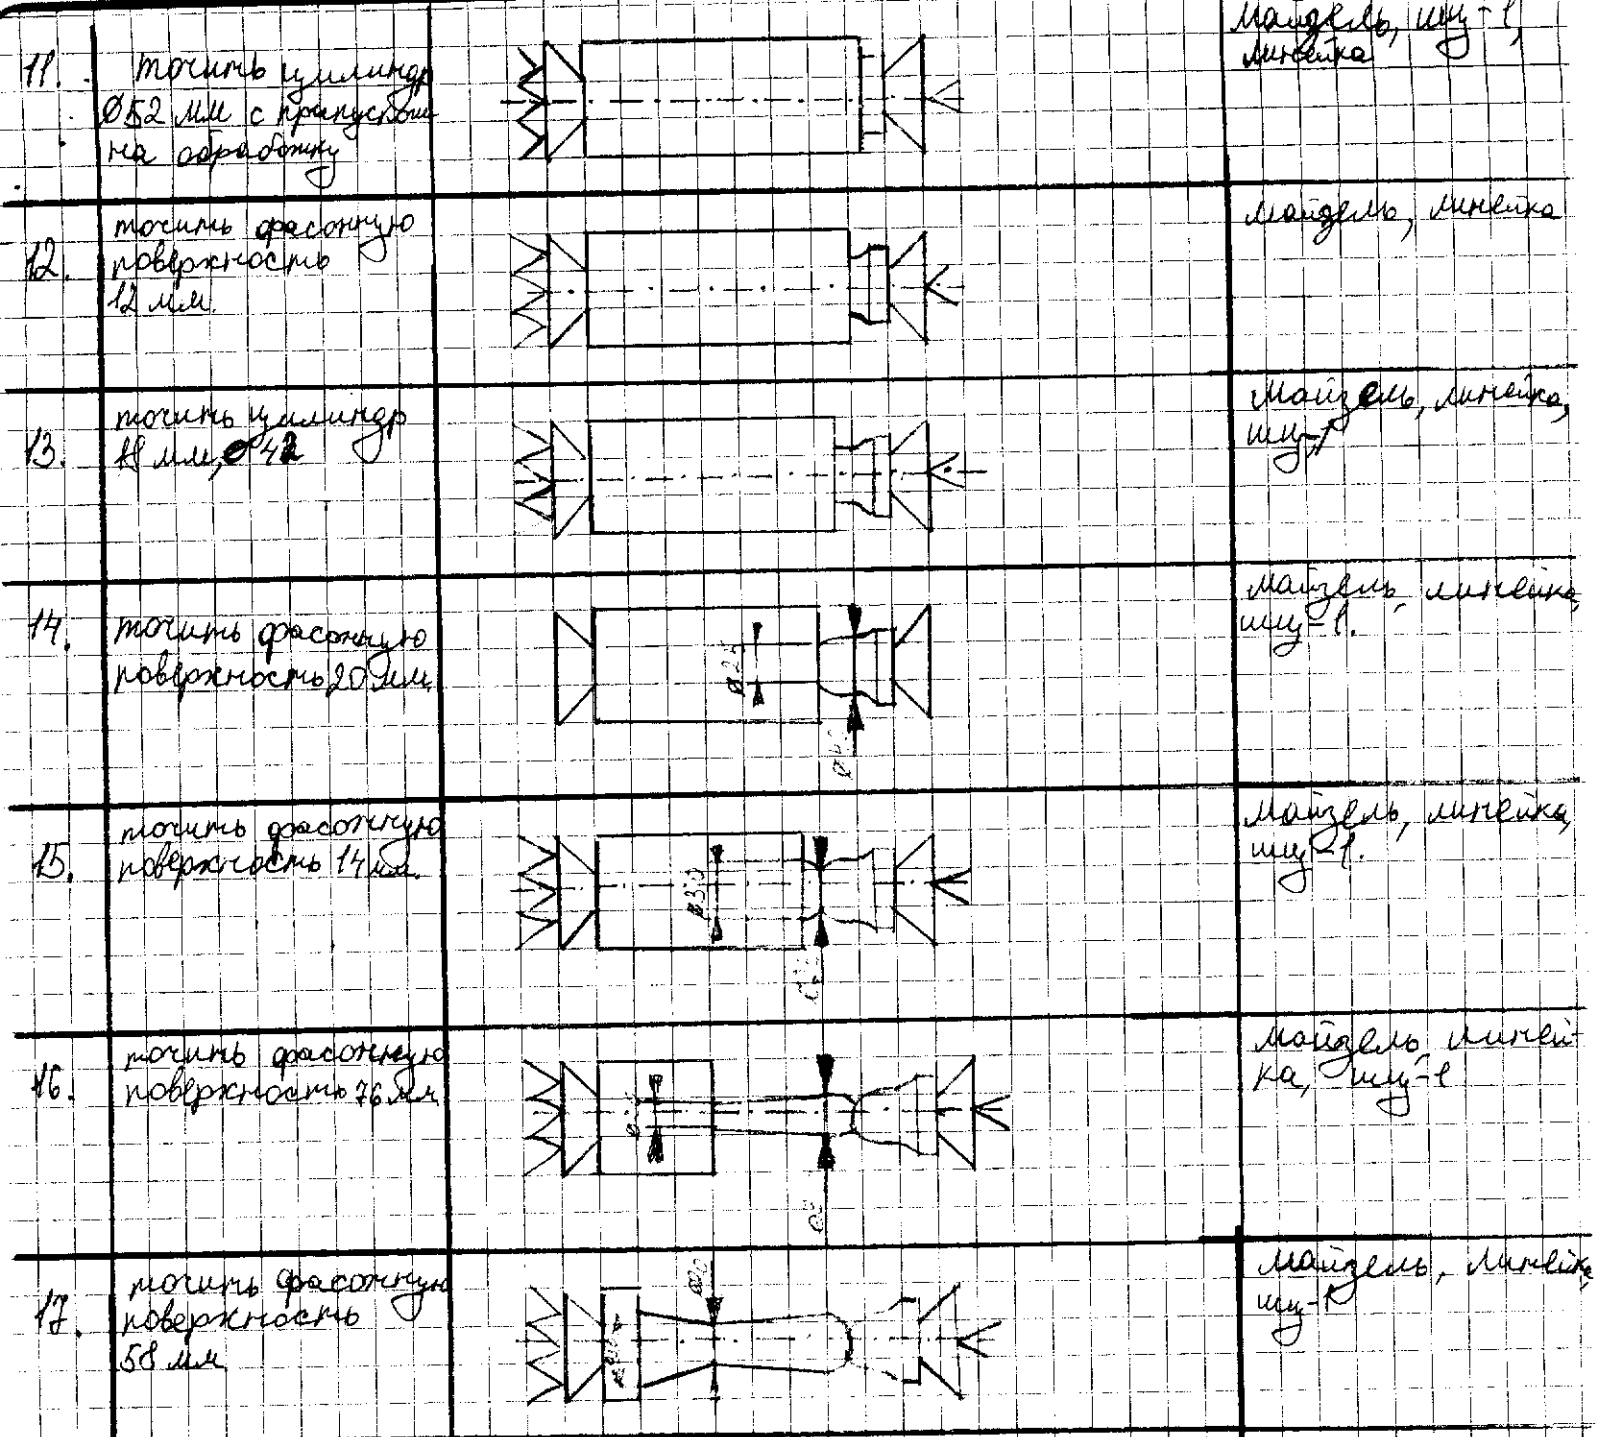 11.
точить цилиндр
Ø52 мм с припуском
на обработку
Майзель, шц-1,
линейка
12.
точить фасонную
поверхность
12 мм.
Майзель, линейка
13.
точить цилиндр
мм, 42
Майзель, линейка,
шц-1
14.
точить фасонную
поверхность 20 мм.
Майзель, линейка,
шц-1.
15.
точить фасонную
поверхность 14 мм.
Ø30
Майзель, линейка,
шц-1.
16.
точить фасонную
поверхность 76 мм
Майзель, линей-
ка, шц-1
17.
точить фасонную
поверхность
58 мм
Майзель, линейка,
шц-1